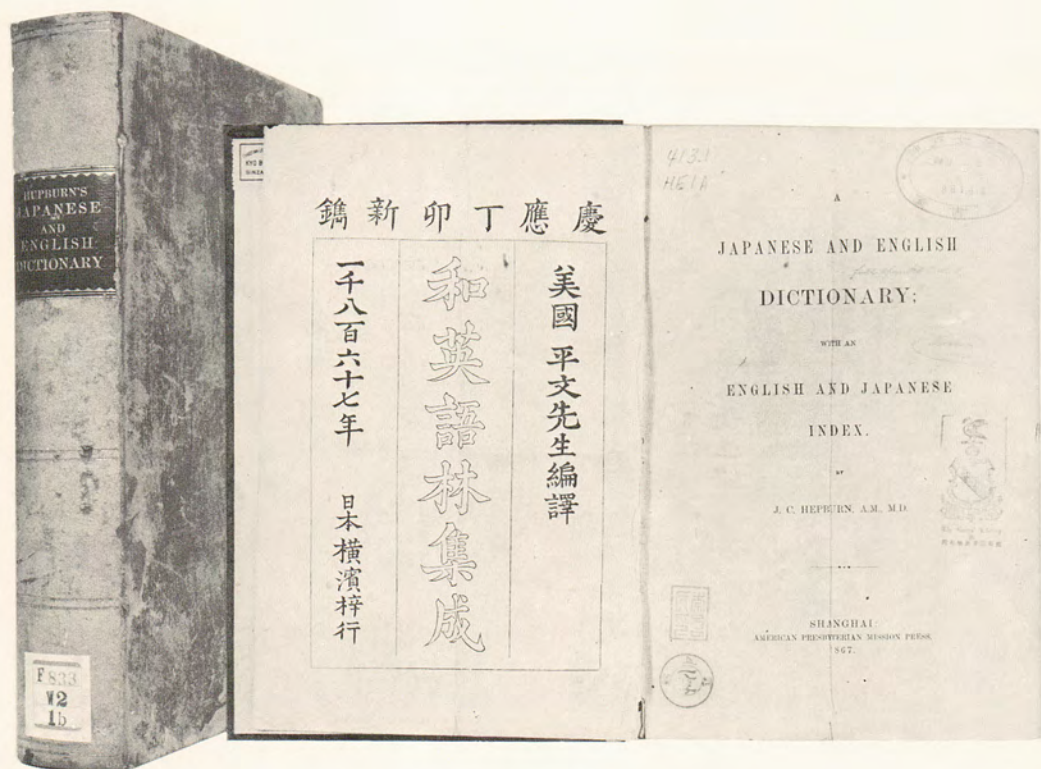 HEPBURN'S
JAPANESE
AND
ENGLISH
DICTIONARY
F 833
W2
1b
慶應丁卯新鐫
美國 平文先生編譯
和英語林集成
一千八百六十七年 日本横濱梓行
A
JAPANESE AND ENGLISH
DICTIONARY;
WITH AN
ENGLISH AND JAPANESE
INDEX.
BY
J. C. HEPBURN, A.M., M.D.
SHANGHAI:
AMERICAN PRESBYTERIAN MISSION PRESS,
1867.